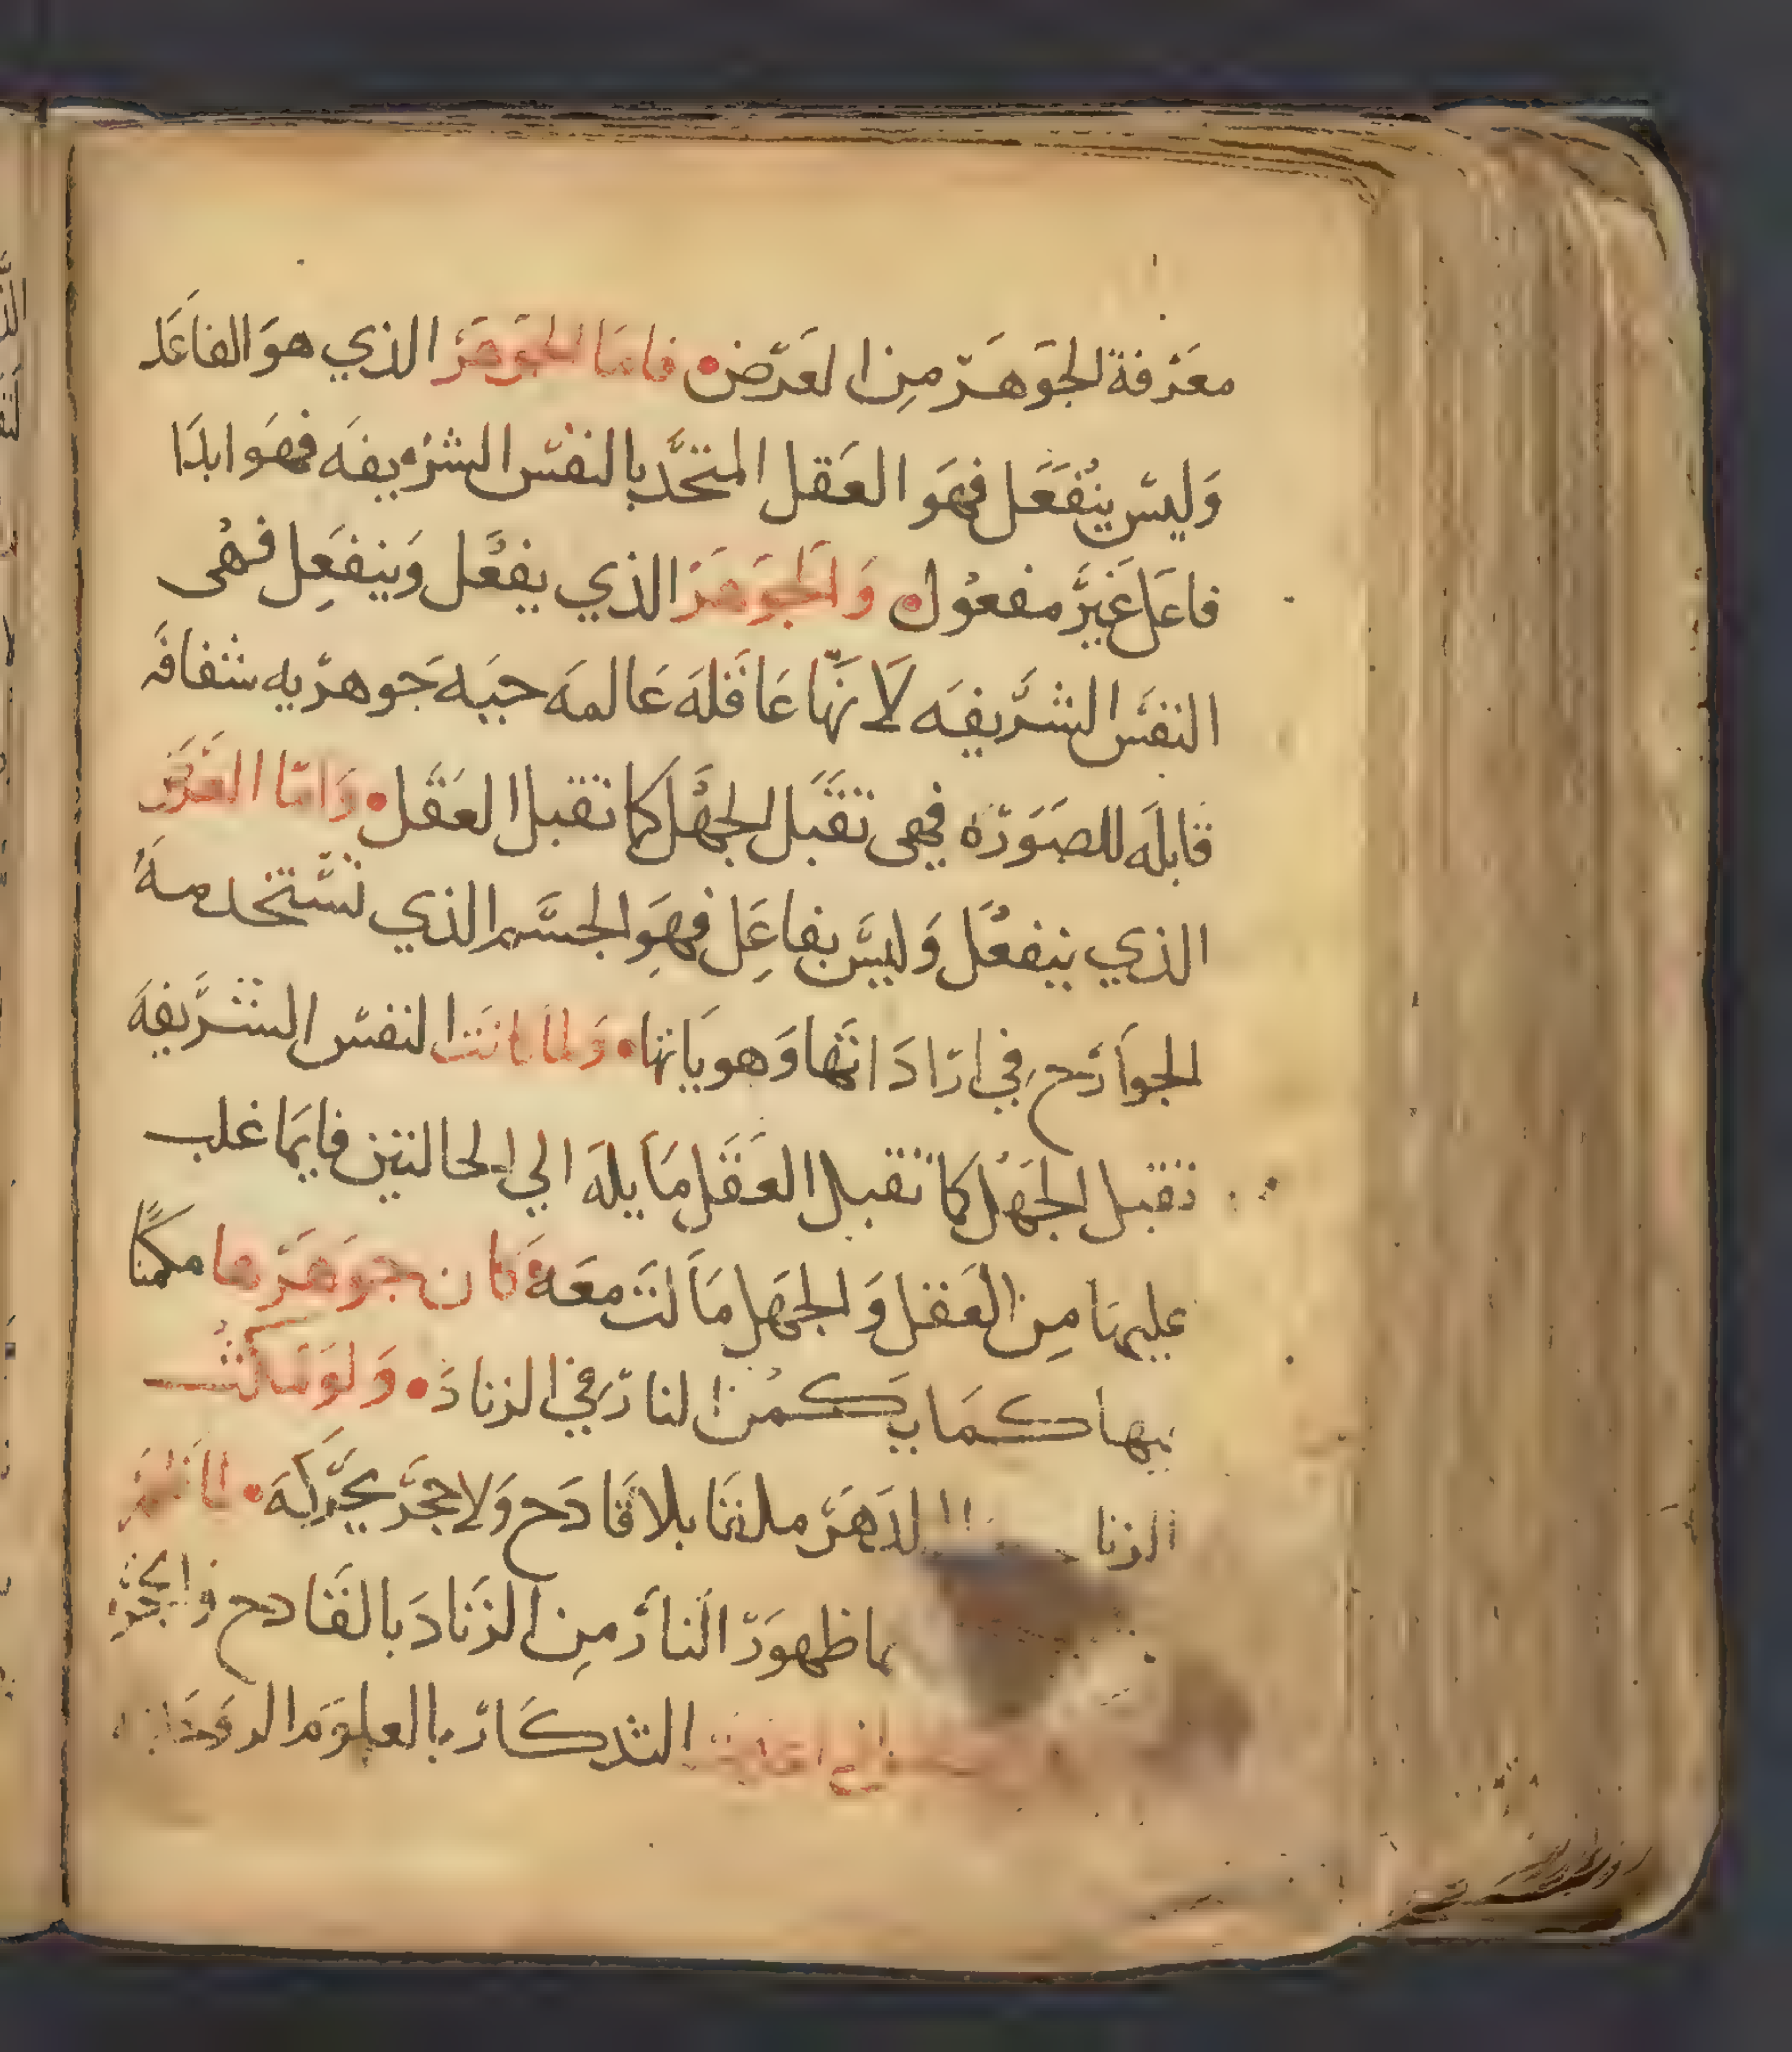 معرفة الجوهر من العرض • فاما الجوهر الذي هو الفاعل
وليس ينفعل فهو العقل المتحد بالنفس الشريفه فهو ابدا
فاعل غير مفعول • والجوهر الذي يفعل وينفعل فهي
النفس الشريفه لانها عاقله عالمه حييه جوهريه شفافه
قابله للصوره فهي تقبل الجهل كما تقبل العقل • واما العرض
الذي ينفعل وليس بفاعل فهو الجسم الذي تستخدمه
الجوارح في اراداتها وهوياتها • ولما كانت النفس الشريفه
تقبل الجهل كما تقبل العقل مايله الي الحالتين فايما غلب
عليها من العقل والجهل مالت معه • كان جوهرها مكمنا
فيها كما يكمن النار في الزناد • ولو مكثت
الزنا الدهر ملقا بلا قادح ولا حجر يحركه •
ما ظهور النار من الزناد بالقادح والحجر
التذكار بالعلوم الروحانيه